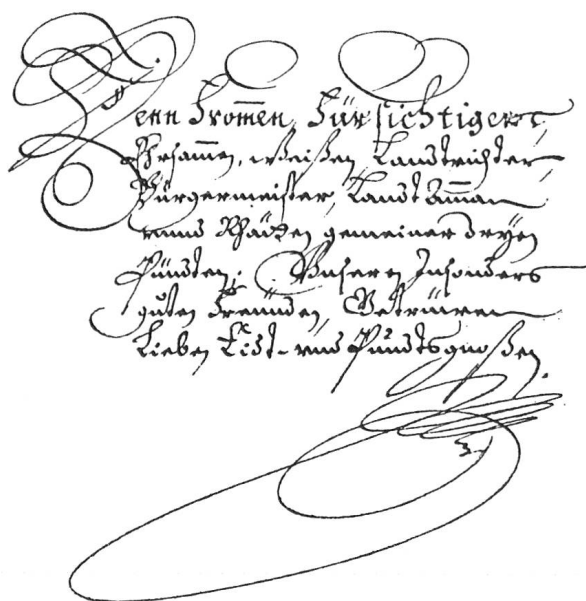 Denn Fromen, Fürsichtigen
Ehrsamen, Weißen, Landtrichter
Bürgermeister, Landt Aman
vnnd Rhäthen gemeiner dryen
Pündten, Vnseren Insonders
guten Freünden, Getrüwen
Lieben Eidt- vnd Pündtsgnoßen.